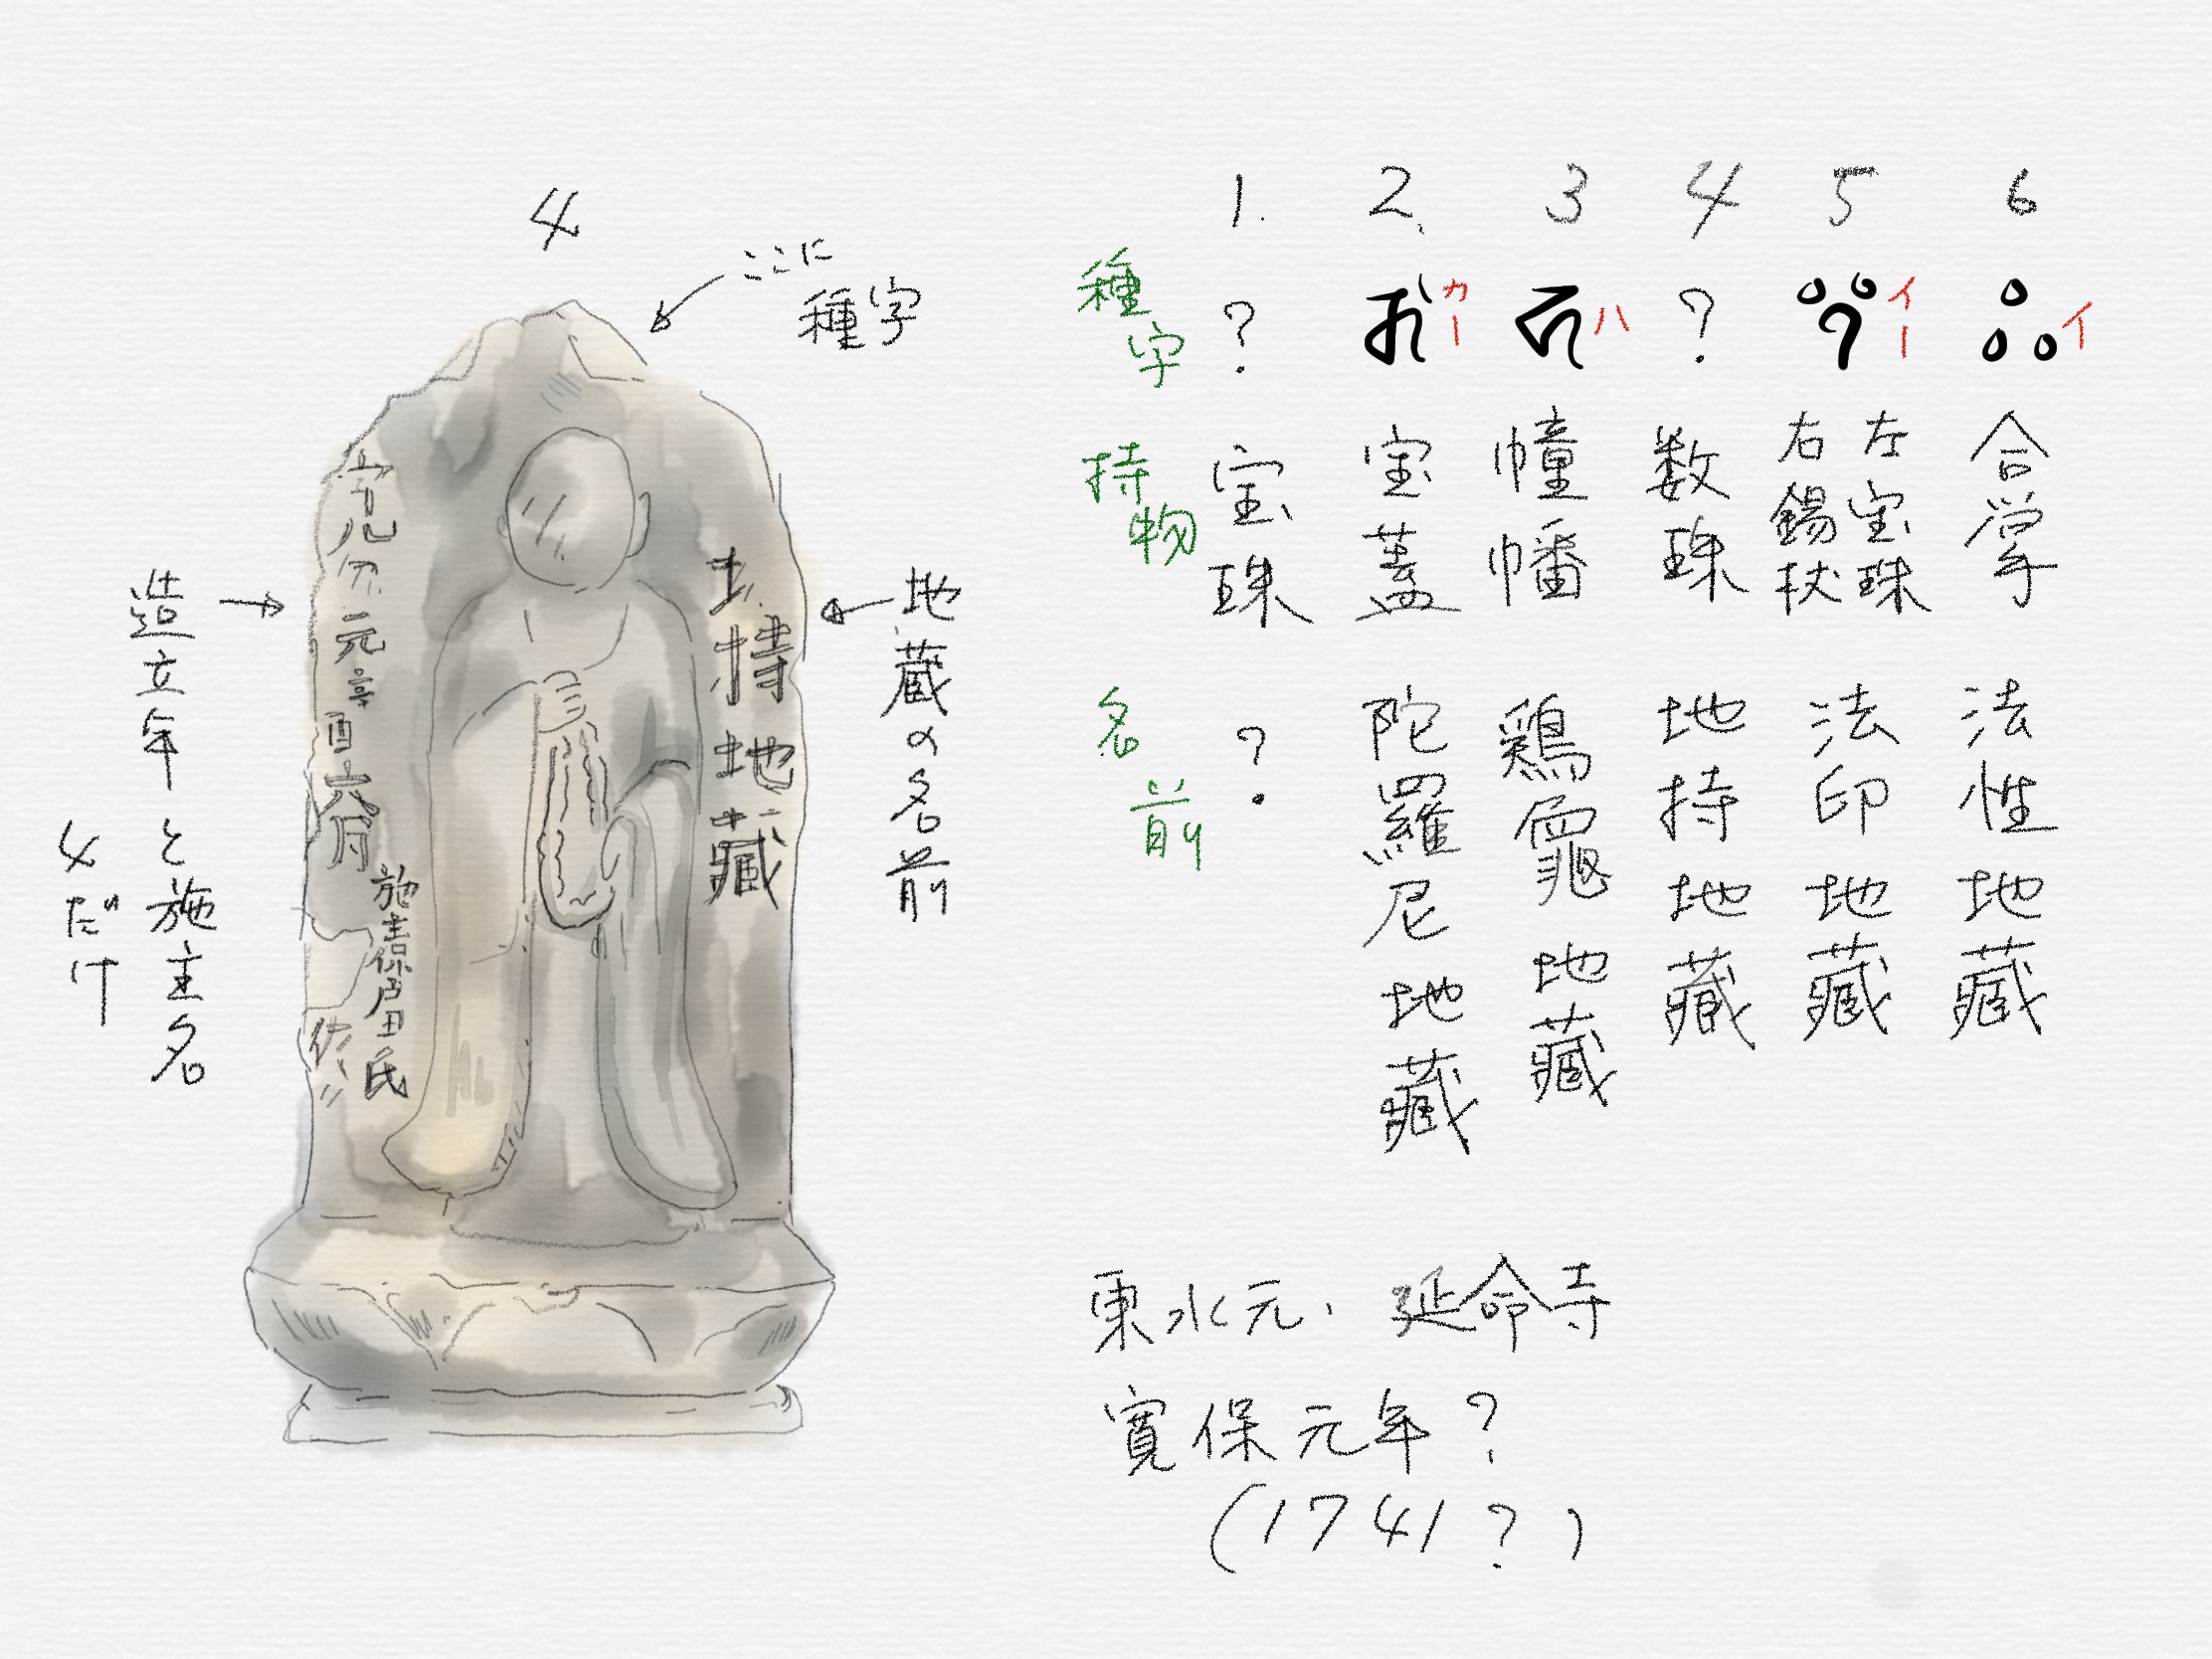 4
ここに
種字
地蔵の名前
造立年と施主名
4だけ
持地藏
元辛酉六月
施主
氏
1. 2. 3 4 5 6
種字
? ? 
カー
ハ
イー
イ
持物
宝珠
宝蓋
幢幡
数珠
左宝珠
右錫杖
合掌
名前
?
陀羅尼地藏
鶏龕地藏
地持地藏
法印地藏
法性地藏
東水元、延命寺
寛保元年?
(1741?)